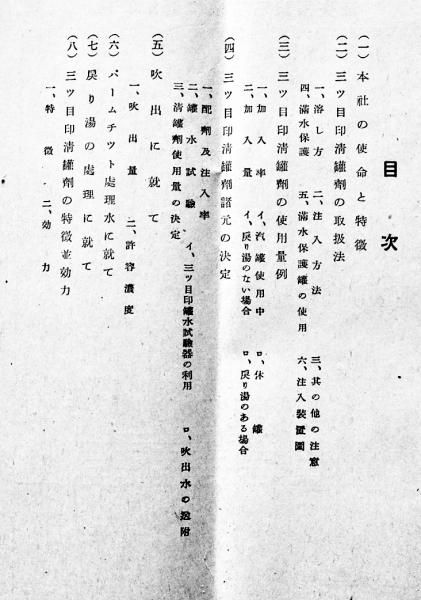 目次
(一) 本社の使命と特徴
(二) 三ツ目印清罐劑の取扱法
一、溶し方 二、注入方法 三、其の他の注意
四、滿水保護 五、滿水保護罐の使用 六、注入裝置圖
(三) 三ツ目印清罐劑の使用量例
一、加入率 イ、汽罐使用中 ロ、休罐
二、加入量 イ、戻り湯のない場合 ロ、戻り湯のある場合
(四) 三ツ目印清罐劑諸元の決定
一、配劑及注入率
二、罐水試驗 イ、三ツ目印罐水試驗器の利用 ロ、吹出水の送附
三、清罐劑使用量の決定
(五) 吹出に就て
一、吹出量 二、許容濃度
(六) パームチツト處理水に就て
(七) 戻り湯の處理に就て
(八) 三ツ目印清罐劑の特徴並効力
一、特徴 二、効力